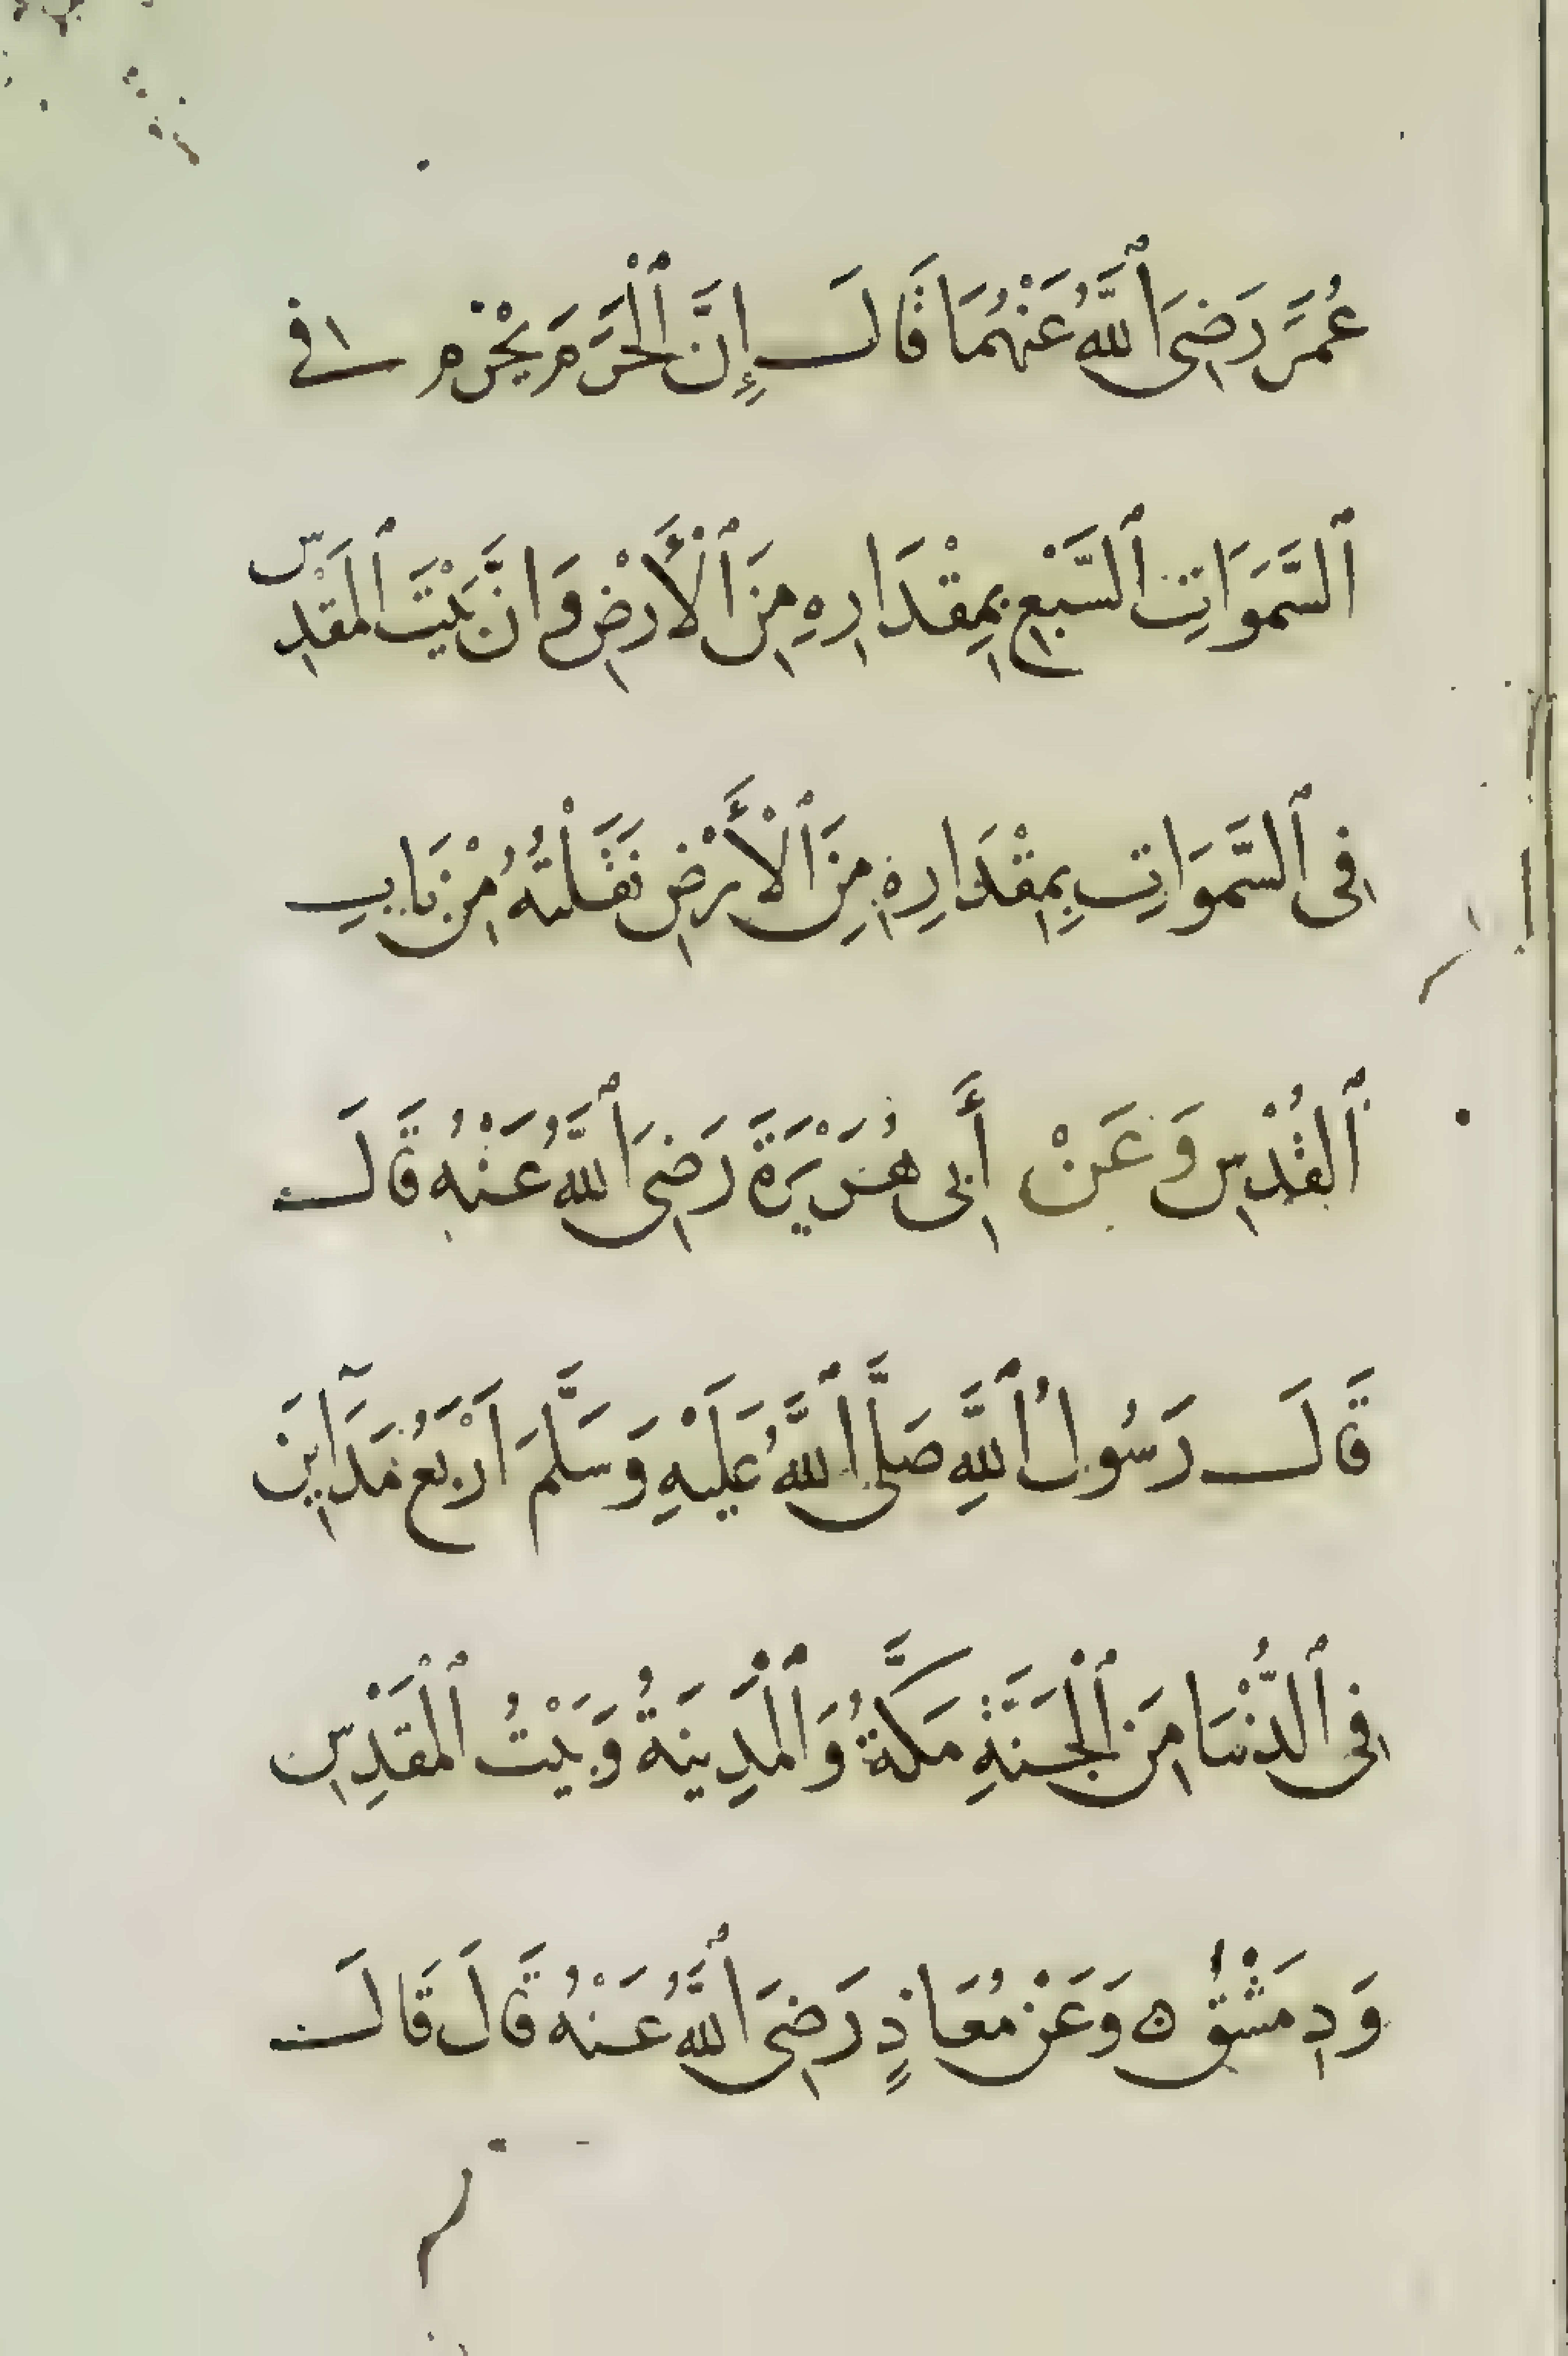 عُمَرَ رَضِيَ ٱللَّهُ عَنْهُمَا قَالَ إِنَّ ٱلْحَرَمَ يُحْرَم في
ٱلسَّمَوَاتِ ٱلسَّبْعِ بِمِقْدَارِهِ مِنَ ٱلْأَرْضِ وَانَّ بَيْتَ ٱلمَقْدِس
فِى ٱلسَّمَوَاتِ بِمِقْدَارِهِ مِنَ ٱلْأَرْضِ نَقَلْتُهُ مِنْ بَابِ
ٱلقُدْسِ وَعَنْ أَبِى هُرَيْرَةَ رَضِيَ ٱللَّهُ عَنْهُ قَالَ
قَالَ رَسُولُ ٱللَّهِ صَلَّى ٱللَّهُ عَلَيْهِ وَسَلَّمَ اَرْبَعُ مَدَآيِنَ
فِى ٱلدُّنْيَا مِنَ ٱلْجَنَّةِ مَكَّةُ وَٱلْمَدِينَةُ وَبَيْتُ ٱلْمَقْدِسِ
وَدِمَشْقُ ه وَعَنْ مُعَاذٍ رَضِيَ ٱللَّهُ عَنْهُ قَالَ قَالَ